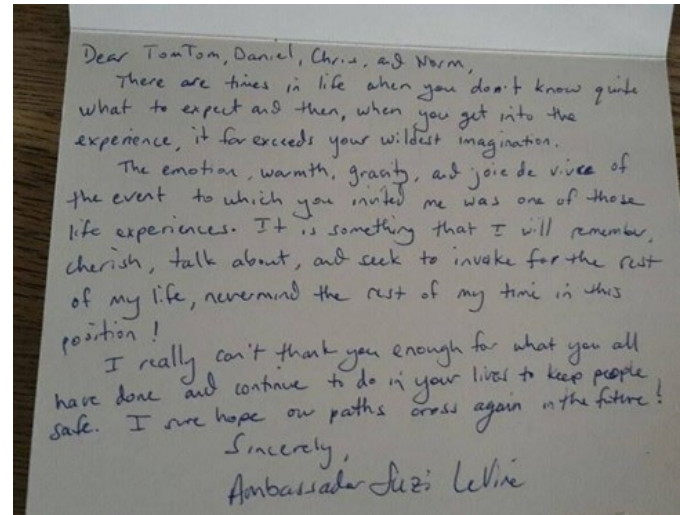 Dear TomTom, Daniel, Chris, and Norm,
There are times in life when you don't know quite
what to expect and then, when you get into the
experience, it far exceeds your wildest imagination.
The emotion, warmth, gravity, and joie de vivre of
the event to which you invited me was one of those
life experiences. It is something that I will remember,
cherish, talk about, and seek to invoke for the rest
of my life, nevermind the rest of my time in this
position!
I really can't thank you enough for what you all
have done and continue to do in your lives to keep people
safe. I sure hope our paths cross again in the future!
Sincerely,
Ambassador Suzi LeVine